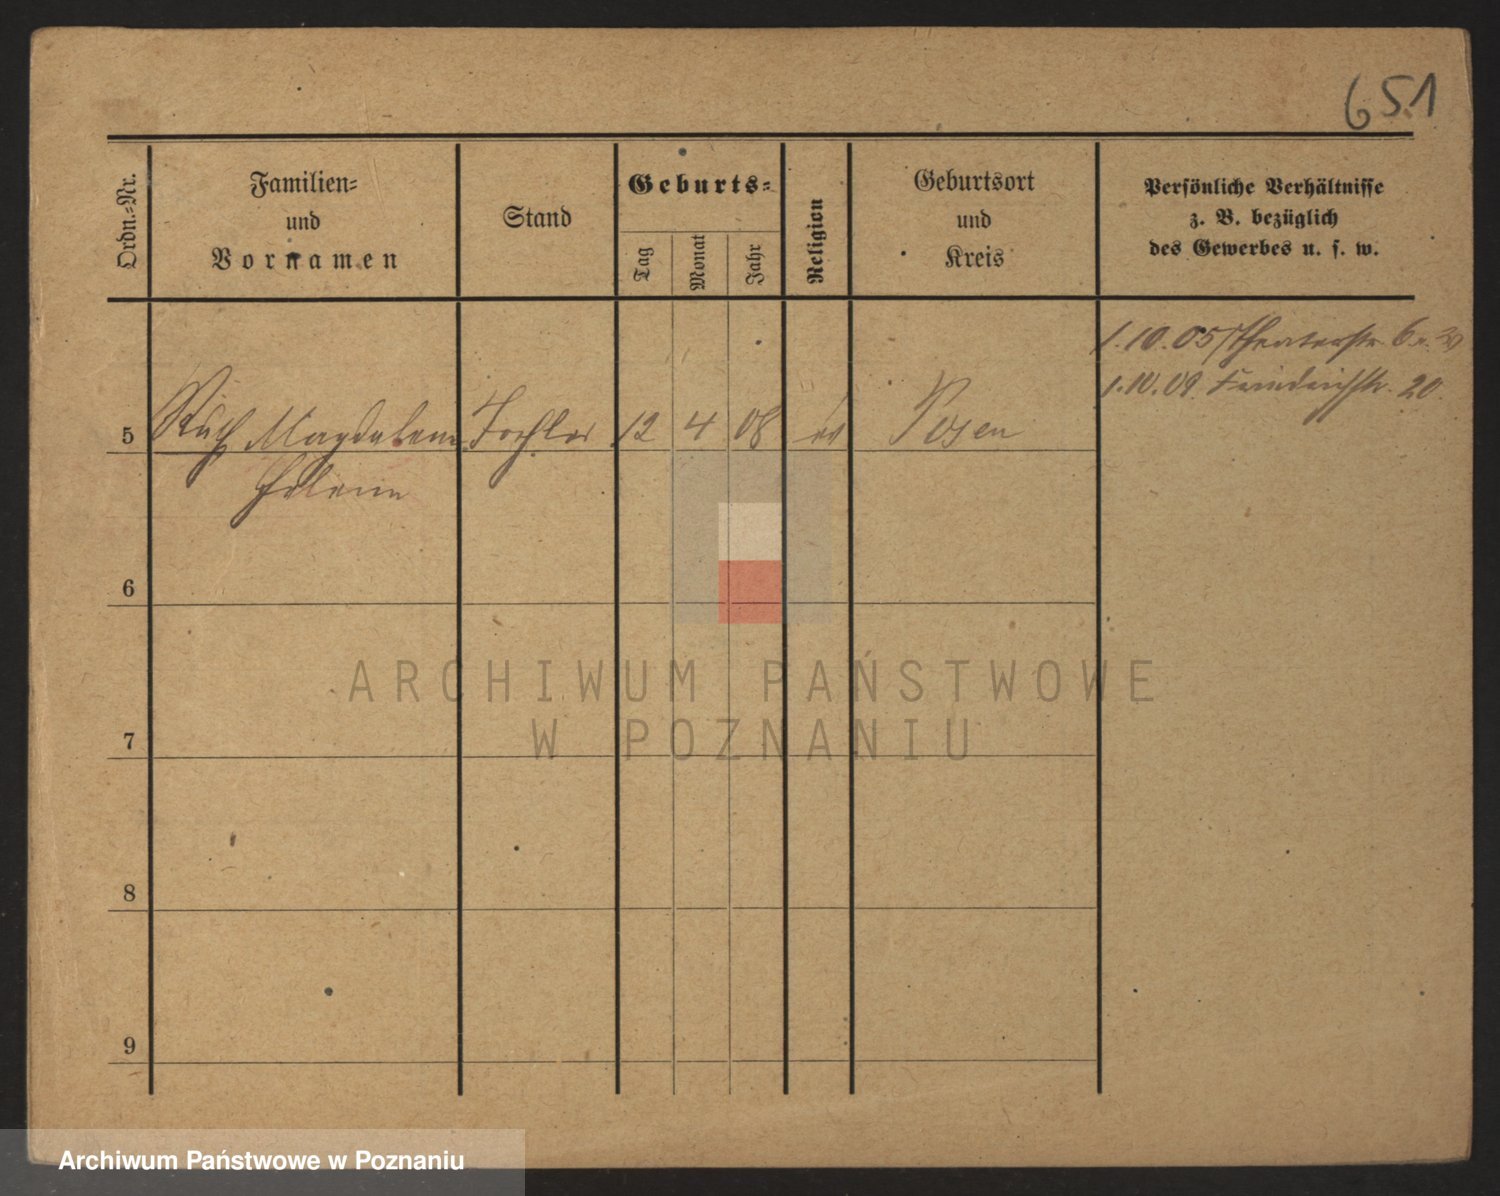 651
Ordn.-Nr.
Familien-
und
Vornamen
Stand
Geburts-
Tag
Monat
Jahr
Religion
Geburtsort
und
Kreis
Persönliche Verhältnisse
z. B. bezüglich
des Gewerbes u. s. w.
1.10.05 Theaterstr. 6
1.10.09. Friedrichstr. 20.
5 Ruth Magdalene Tochter 12 4 08 ev Posen
Helene
6
7
8
9
ARCHIWUM PAŃSTWOWE
W POZNANIU
Archiwum Państwowe w Poznaniu